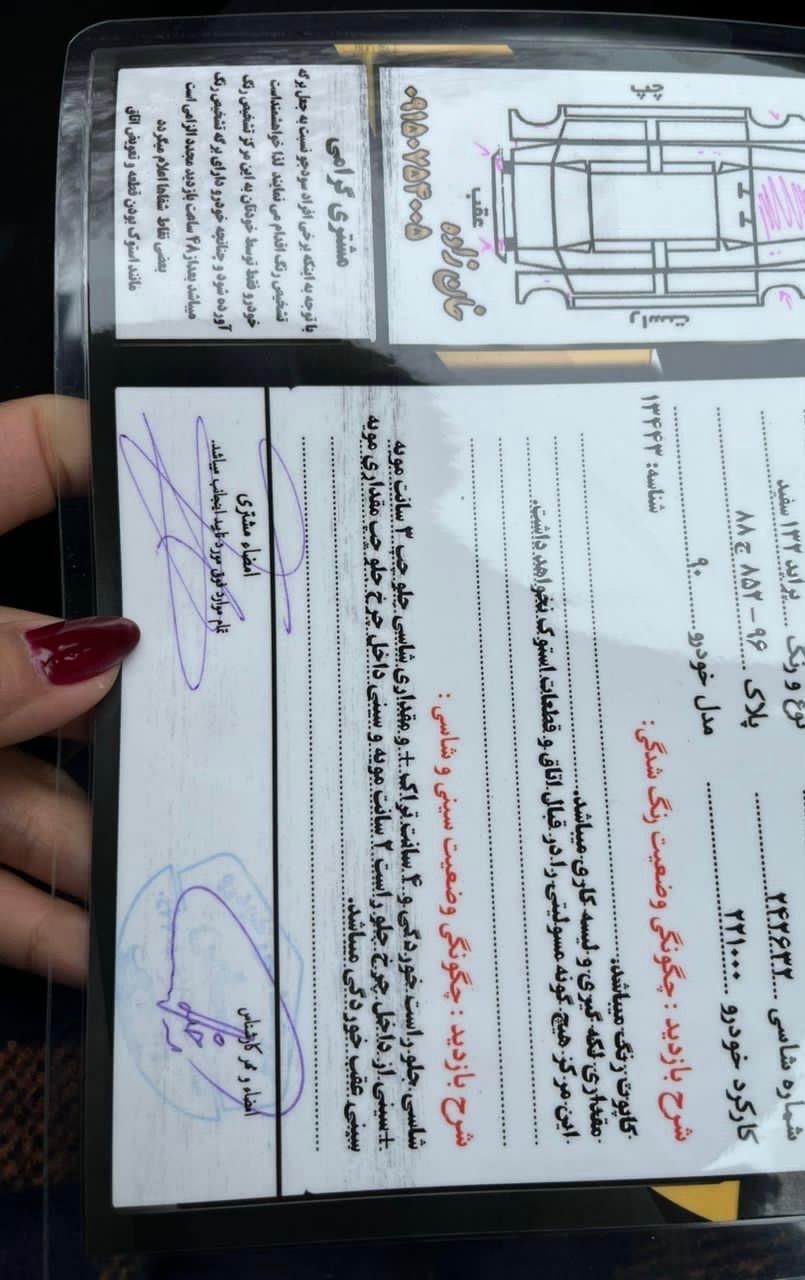 چپ
عقب
راست
خان زاده
۰۹۱۵۰۷۵۴۰۰۵
مشتری گرامی
با توجه به اینکه برخی افراد سودجو نسبت به جعل برگه
تشخیص رنگ اقدام می نمایند لذا خواهشمنداست
خودرو فقط توسط خودتان به این مرکز تشخیص رنگ
آورده شود و چنانچه خودرو دارای برگه تشخیص رنگ
میباشد بعداز ۴۸ ساعت بازدید مجدد الزامی است
بعضی نقاط شفاها اعلام میگردد
مانند استوک بودن قطعه و تعویض اتاق
نوع و رنگ پراید ۱۳۲ سفید
شماره شاسی ۲۴۲۶۳۲
پلاک ۹۶ - ۸۵۲ ج ۸۸
کارکرد خودرو ۲۲۱۰۰۰
مدل خودرو ۹۰
شناسه: ۱۳۴۴۳
شرح بازدید : چگونگی وضعیت رنگ شدگی:
کاپوت رنگ میباشد.
مقداری لکه گیری و لیسه کاری میباشد.
این مرکز هیچ گونه مسولیتی را در قبال اتاق و قطعات استوک نخواهد داشت.
شرح بازدید : چگونگی وضعیت سینی و شاسی :
شاسی جلو راست خوردگی و ۴ سانت تراک + و مقداری شاسی جلو چپ ۳ سانت مویه
+ سینی از داخل چرخ جلو راست ۲ سانت مویه و سینی داخل چرخ جلو چپ مقداری مویه
سینی عقب خوردگی میباشد.
امضاء مشتری
تمام موارد فوق مورد تایید اینجانب میباشد.
امضاء و مهر کارشناس